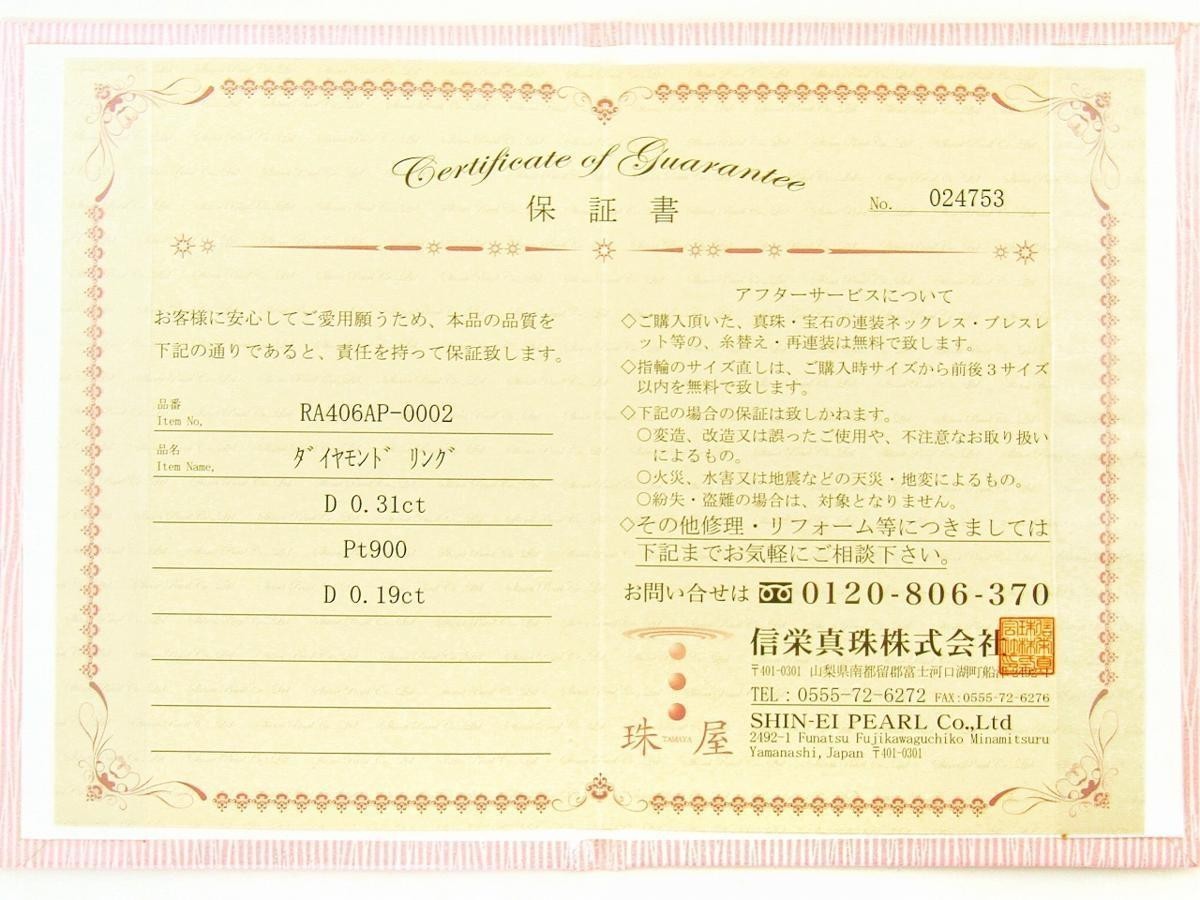 Certificate of Guarantee
保証書
No. 024753
お客様に安心してご愛用願うため、本品の品質を
下記の通りであると、責任を持って保証致します。
品番
Item No, RA406AP-0002
品名
Item Name, ﾀﾞｲﾔﾓﾝﾄﾞ ﾘﾝｸﾞ
D 0.31ct
Pt900
D 0.19ct
アフターサービスについて
◇ご購入頂いた、真珠・宝石の連装ネックレス・ブレスレ
ット等の、糸替え・再連装は無料で致します。
◇指輪のサイズ直しは、ご購入時サイズから前後３サイズ
以内を無料で致します。
◇下記の場合の保証は致しかねます。
○変造、改造又は誤ったご使用や、不注意なお取り扱い
によるもの。
○火災、水害又は地震などの天災・地変によるもの。
○紛失・盗難の場合は、対象となりません。
◇その他修理・リフォーム等につきましては
下記までお気軽にご相談下さい。
お問い合せは 0120-806-370
信栄真珠株式会社
〒401-0301 山梨県南都留郡富士河口湖町船
TEL：0555-72-6272 FAX:0555-72-6276
SHIN-EI PEARL Co.,Ltd
2492-1 Funatsu Fujikawaguchiko Minamitsuru
Yamanashi,Japan 〒401-0301
珠 TAMAYA 屋